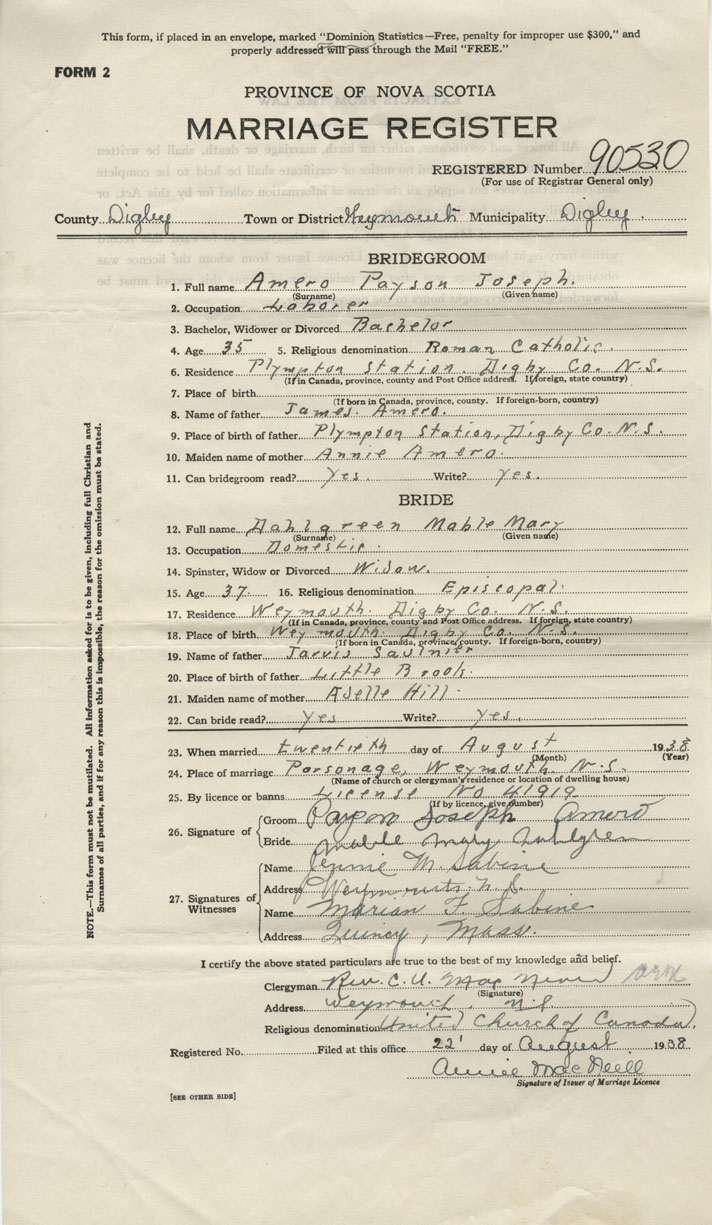 This form, if placed in an envelope, marked "Dominion Statistics—Free, penalty for improper use $300," and
properly addressed will pass through the Mail "FREE."
FORM 2
PROVINCE OF NOVA SCOTIA
MARRIAGE REGISTER
REGISTERED Number 90530
(For use of Registrar General only)
County Digby Town or District Weymouth Municipality Digby
BRIDEGROOM
1. Full name Amero Payson Joseph.
(Surname) (Given name)
2. Occupation Laborer
3. Bachelor, Widower or Divorced Bachelor
4. Age 35 5. Religious denomination Roman Catholic.
6. Residence Plympton Station, Digby Co. N.S.
(If in Canada, province, county and Post Office address. If foreign, state country)
7. Place of birth
(If born in Canada, province, county. If foreign-born, country)
8. Name of father James Amero.
9. Place of birth of father Plympton Station, Digby Co. N.S.
10. Maiden name of mother Annie Amero.
11. Can bridegroom read? Yes. Write? Yes.
BRIDE
12. Full name Dahlgreen Mable Mary
(Surname) (Given name)
13. Occupation Domestic.
14. Spinster, Widow or Divorced Widow.
15. Age 37. 16. Religious denomination Episcopal.
17. Residence Weymouth. Digby Co. N.S.
(If in Canada, province, county and Post Office address. If foreign, state country)
18. Place of birth Weymouth. Digby Co. N.S.
(If born in Canada, province, county. If foreign-born, country)
19. Name of father Jarvis Saulnier
20. Place of birth of father Little Brook.
21. Maiden name of mother Adelle Hill.
22. Can bride read? Yes Write? Yes.
23. When married twentieth day of August 1938
(Month) (Year)
24. Place of marriage Parsonage, Weymouth N.S.
(Name of church or clergyman's residence or location of dwelling house)
25. By licence or banns License No 41919
(If by licence, give number)
26. Signature of
Groom Payson Joseph Amero
Bride Mable Mary Dahlgren
27. Signatures of Witnesses
Name Jennie M. Sabine
Address Weymouth N.S.
Name Marian F Sabine
Address Quincy, Mass.
I certify the above stated particulars are true to the best of my knowledge and belief.
Clergyman Rev. C. U. Mac
(Signature)
Address Weymouth, N.S.
Religious denomination (United Church of Canada).
Registered No. Filed at this office 22' day of August 1938
Annie MacNeill
Signature of Issuer of Marriage Licence
[SEE OTHER SIDE]
NOTE.—This form must not be mutilated. All information asked for is to be given, including full Christian and
Surnames of all parties, and if for any reason this is impossible, the reason for the omission must be stated.